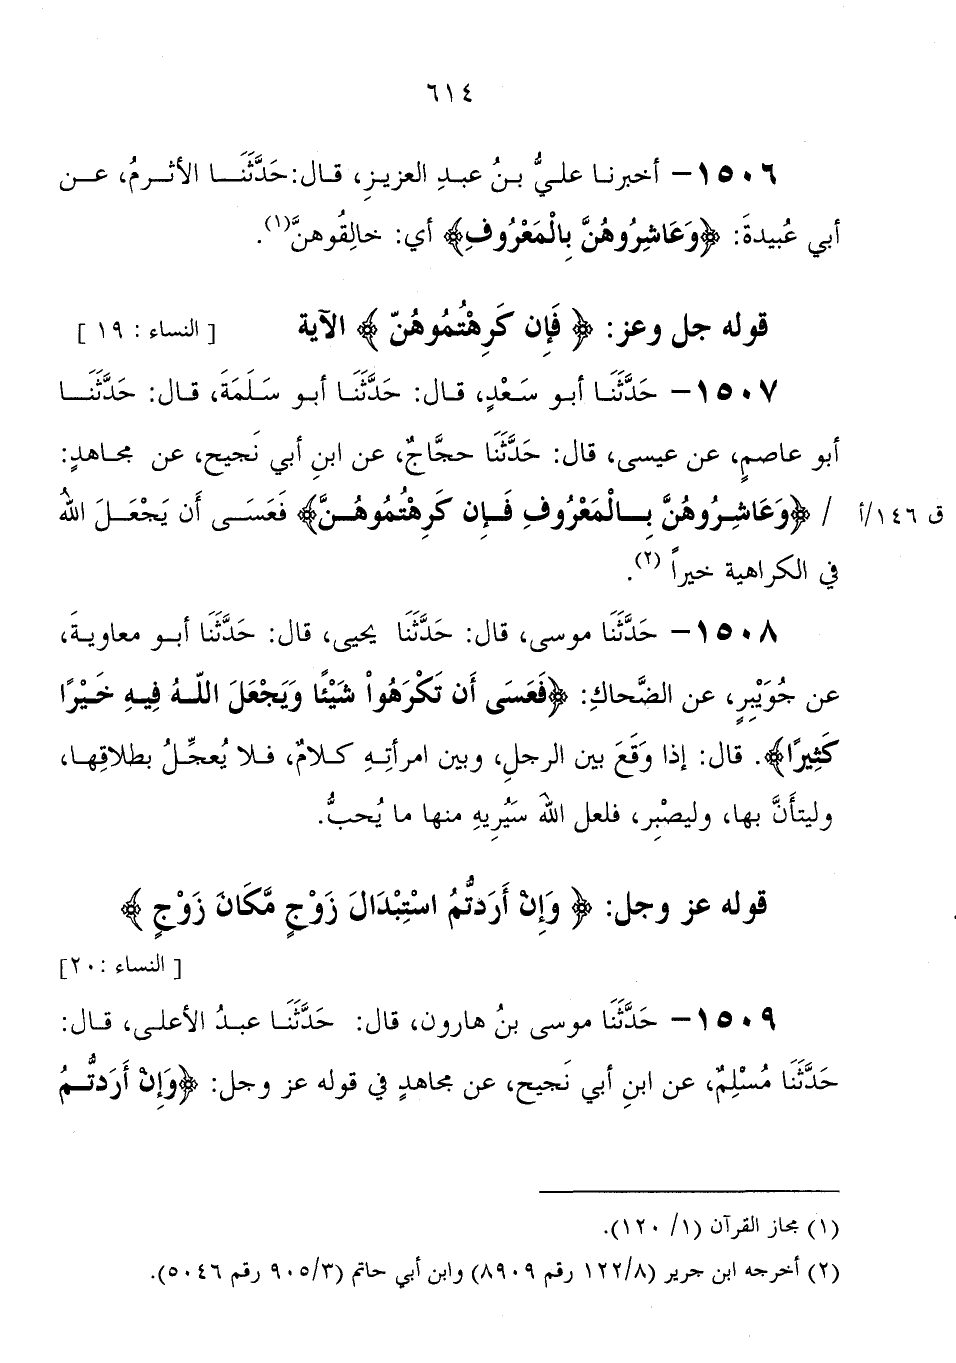 ٦١٤
١٥٠٦- أخبرنا عليُّ بنُ عبدِ العزيزِ، قال: حَدَّثَنَا الأثرمُ، عن
أبي عُبيدةَ: ﴿وَعَاشِرُوهُنَّ بِالْمَعْرُوفِ﴾ أي: خالِقُوهنَّ(١).
قوله جل وعز: ﴿ فَإِن كَرِهْتُمُوهُنّ ﴾ الآية [ النساء : ١٩ ]
١٥٠٧- حَدَّثَنَا أبو سَعْدٍ، قال: حَدَّثَنَا أبو سَلَمَةَ، قال: حَدَّثَنَا
أبو عاصمٍ، عن عيسى، قال: حَدَّثَنَا حجَّاجٌ، عن ابنِ أبي نَجيح، عن مجاهدٍ:
ق ١٤٦/أ / ﴿وَعَاشِرُوهُنَّ بِالْمَعْرُوفِ فَإِن كَرِهْتُمُوهُنَّ﴾ فَعَسَى أَن يَجْعَلَ اللهُ
في الكراهية خيراً (٢).
١٥٠٨- حَدَّثَنَا موسى، قال: حَدَّثَنَا يحيى، قال: حَدَّثَنَا أبو معاويةَ،
عن جُوَيْبِرٍ، عن الضَّحاكِ: ﴿فَعَسَى أَن تَكْرَهُواْ شَيْئًا وَيَجْعَلَ اللّهُ فِيهِ خَيْرًا
كَثِيرًا﴾. قال: إذا وَقَعَ بين الرجلِ، وبين امرأتِهِ كلامٌ، فلا يُعجِّلُ بطلاقِها،
وليتأَنَّ بها، وليصْبِر، فلعل اللهَ سَيُرِيهِ منها ما يُحبُّ.
قوله عز وجل: ﴿ وَإِنْ أَرَدتُّمُ اسْتِبْدَالَ زَوْجٍ مَّكَانَ زَوْجٍ ﴾
[ النساء :٢٠]
١٥٠٩- حَدَّثَنَا موسى بنُ هارون، قال: حَدَّثَنَا عبدُ الأعلى، قال:
حَدَّثَنَا مُسْلِمٌ، عن ابنِ أبي نَجيح، عن مجاهدٍ في قوله عز وجل: ﴿وَإِنْ أَرَدتُّمُ
(١) مجاز القرآن (١/ ١٢٠).
(٢) أخرجه ابن جرير (١٢٢/٨ رقم ٨٩٠٩) وابن أبي حاتم (٩٠٥/٣ رقم ٥٠٤٦).